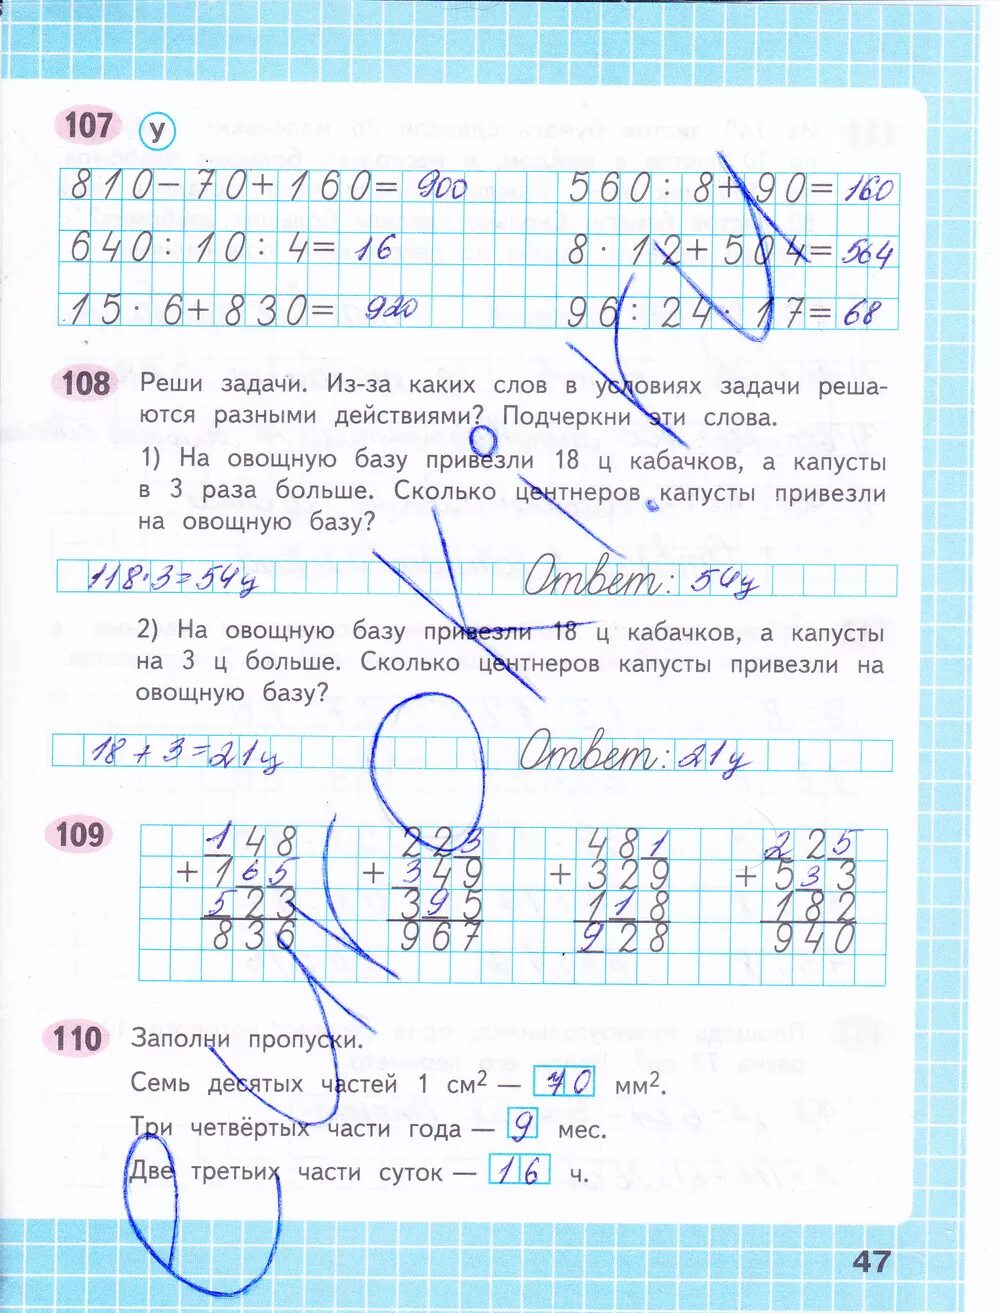 107 у
810−70+160=900 560:8+90=160
640:10:4=16 8·12+504=564
15·6+830=920 96:24·17=68
108 Реши задачи. Из-за каких слов в условиях задачи реша-
ются разными действиями? Подчеркни эти слова.
1) На овощную базу привезли 18 ц кабачков, а капусты
в 3 раза больше. Сколько центнеров капусты привезли
на овощную базу?
118·3=54ц Ответ: 54ц
2) На овощную базу привезли 18 ц кабачков, а капусты
на 3 ц больше. Сколько центнеров капусты привезли на
овощную базу?
18+3=21ц Ответ: 21ц
109
148 223 481 225
+165 +349 +329 +533
523 395 118 182
836 967 928 940
110 Заполни пропуски.
Семь десятых частей 1 см² — 70 мм².
Три четвёртых части года — 9 мес.
Две третьих части суток — 16 ч.
47